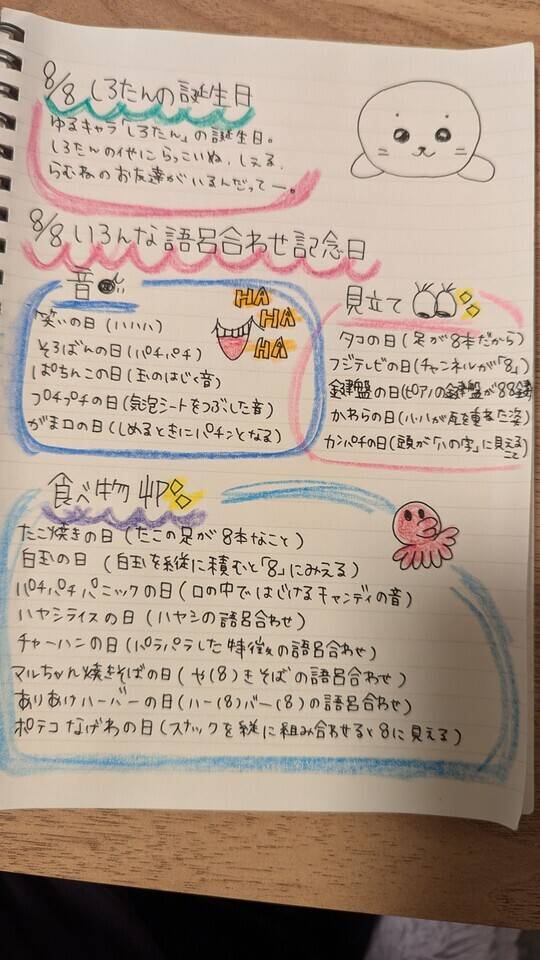 8/8 しろたんの誕生日
ゆるキャラ「しろたん」の誕生日。
しろたんの他にらっこいぬ、しえる、
らむねのお友達がいるんだってー。
8/8 いろんな語呂合わせ記念日
音
笑いの日(ハハハ)
そろばんの日(パチパチ)
ぱちんこの日(玉のはじく音)
プチプチの日(気泡シートをつぶした音)
がま口の日(しめるときにパチンとなる)
HA
HA
HA
見立て
タコの日(足が8本だから)
フジテレビの日(チャンネルが「8」)
鍵盤の日(ピアノの鍵盤が88鍵)
かわらの日(八・八が瓦を重ねた姿)
カンパチの日(頭が「八の字」に見えること)
食べ物
たこ焼きの日(たこの足が8本なこと)
白玉の日(白玉を縦に積むと「8」にみえる)
パチパチパニックの日(口の中ではじけるキャンディの音)
ハヤシライスの日(ハヤシの語呂合わせ)
チャーハンの日(パラパラした特徴の語呂合わせ)
マルちゃん焼きそばの日(や(8)きそばの語呂合わせ)
ありあけハーバーの日(ハー(8)バー(8)の語呂合わせ)
ポテコなげわの日(スナックを縦に組み合わせると8に見える)